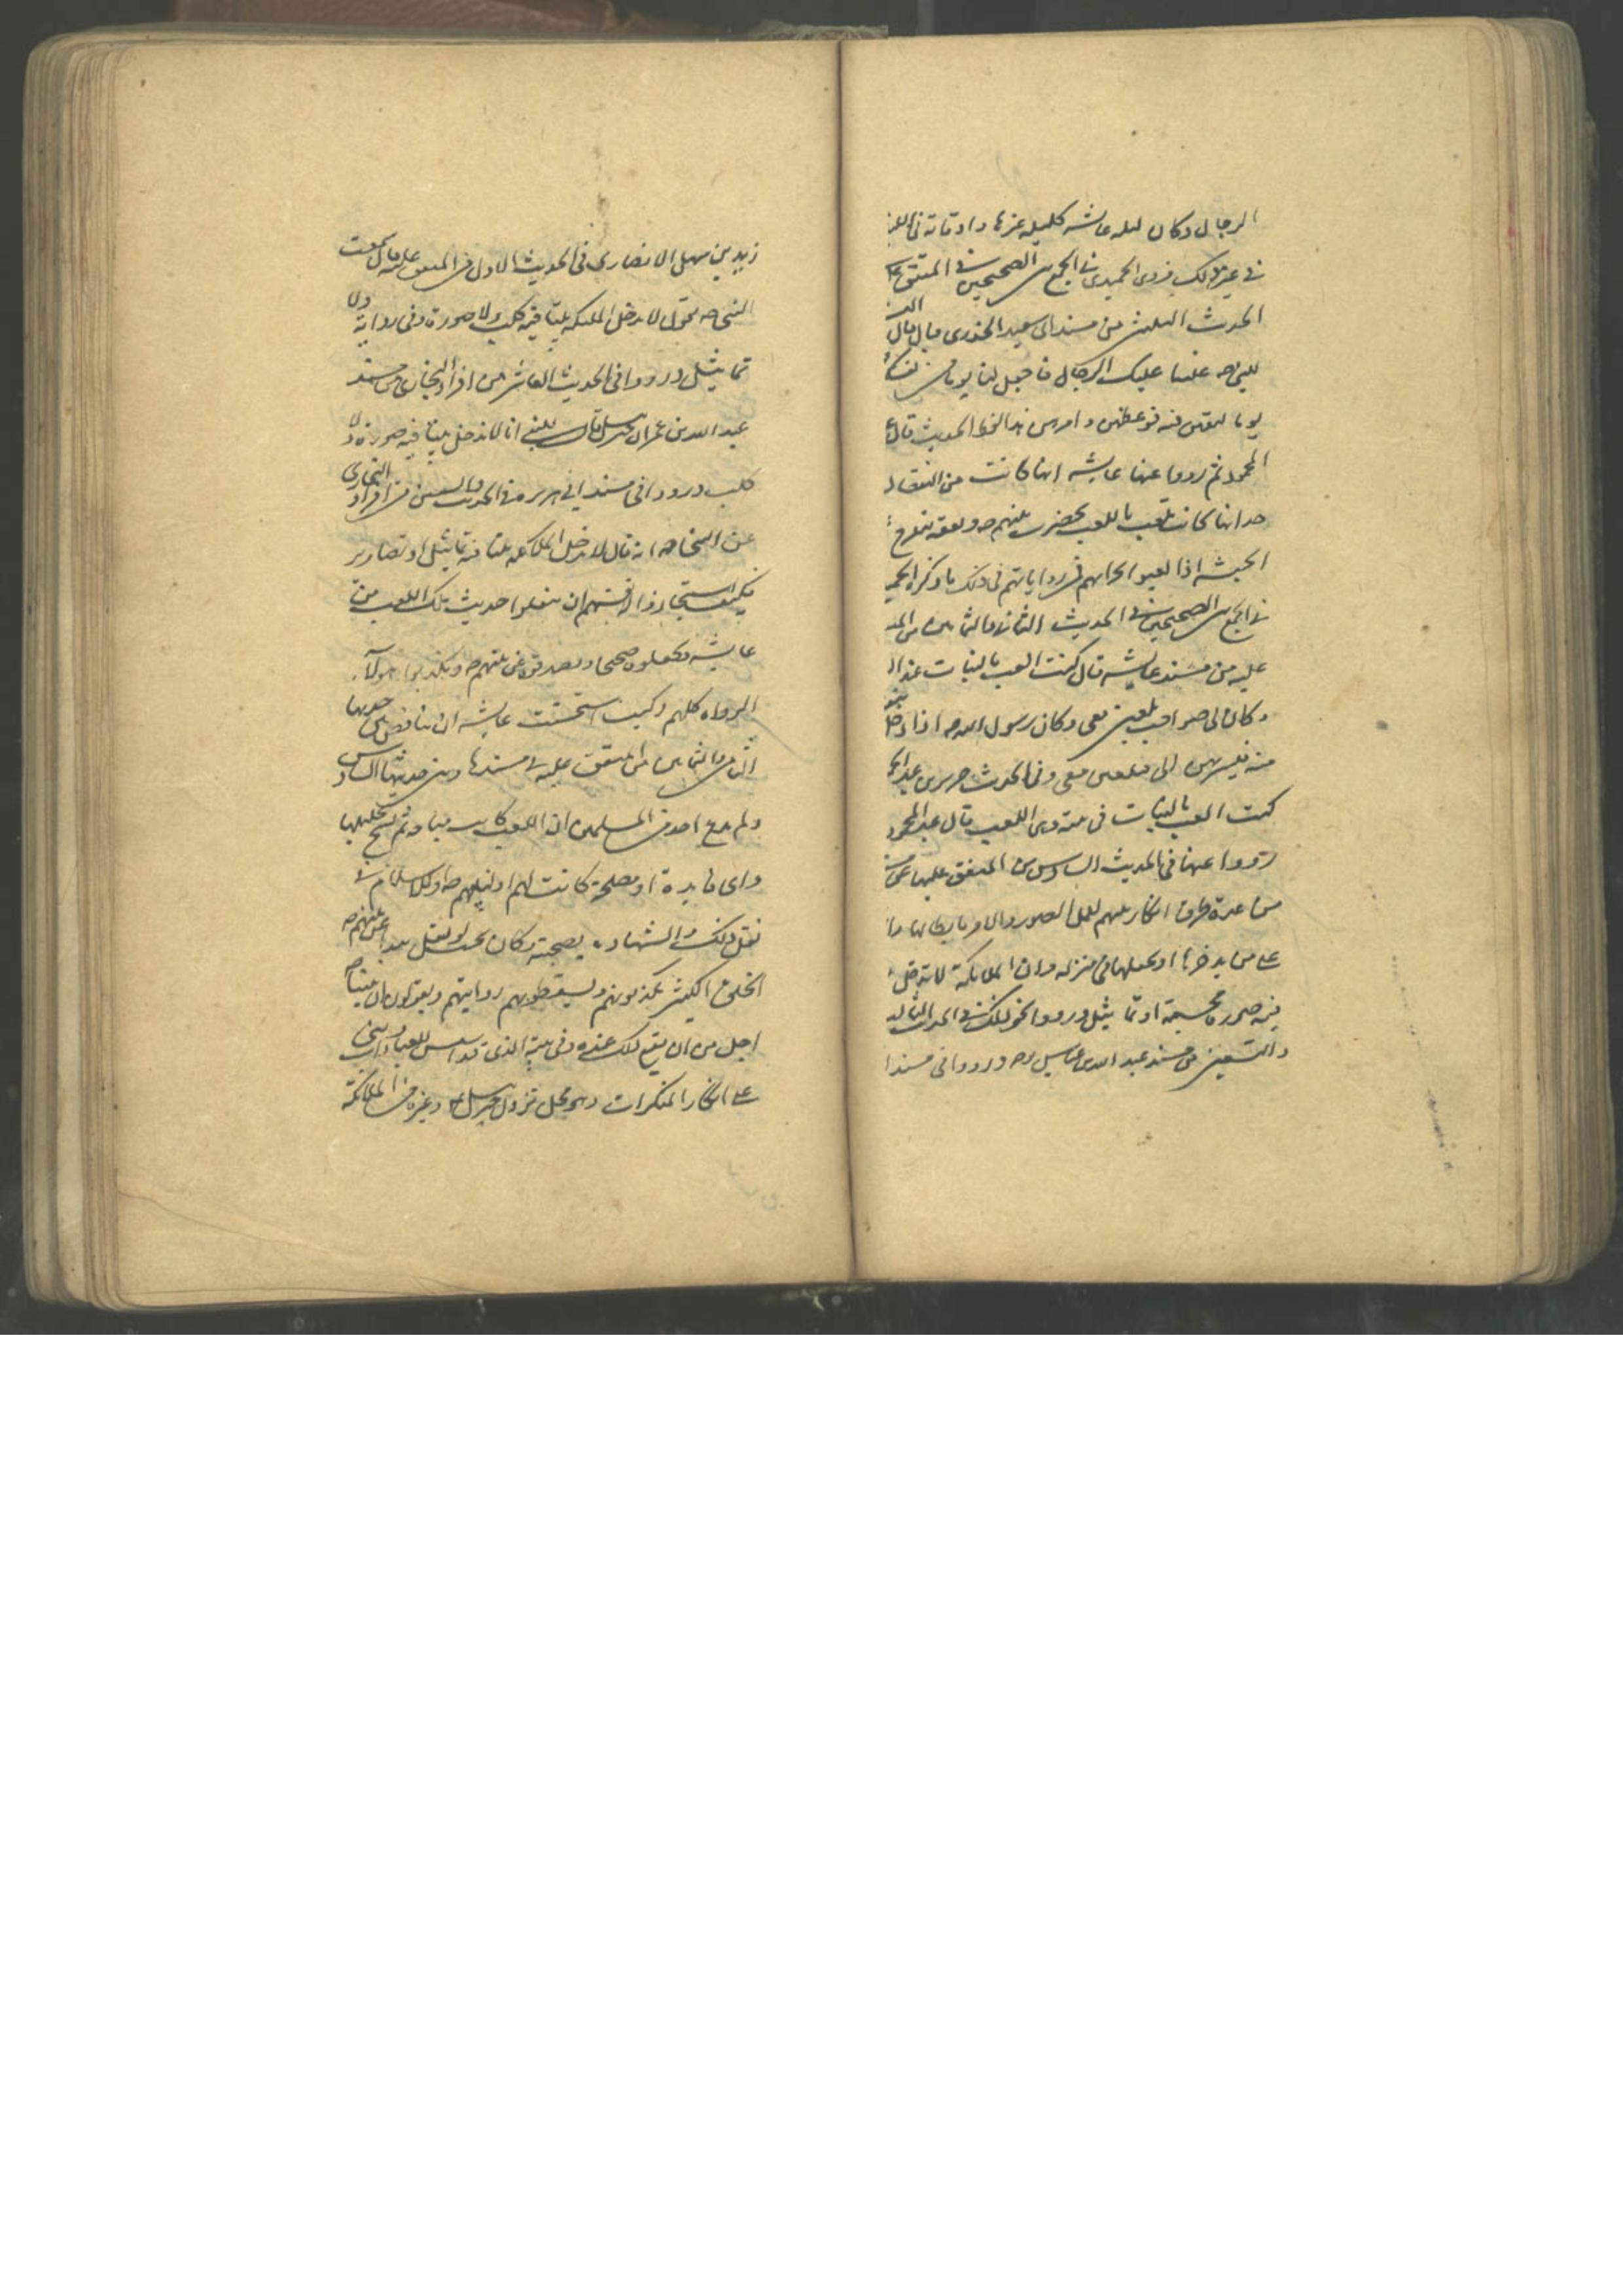 الرجال وكان ليله عايشه كليله غيرها واوقاته في
في غير ذلك فروى الحميدى في الجمع بين الصحيحين في المتفق
الحديث الثلثين من مسند ابى سعيد الخدرى قال قال
للنبي ص غلبنا عليك الرجال فاجعل لنا يوما من
يوما لقيهن فيه فوعظهن وامرهن هذا لفظ الحديث قال
المحمود ثم رووا عنها عايشه انها كانت من
حد انها كانت تلعب باللعب بحضرت نبيهم ص
الحبشه اذا لعبوا فمن رواياتهم في ذلك ما ذكره
في الجمع بين الصحيحين في الحديث الثاني والثمانين من
عليه من مسند عايشه قال كنت العب بالبنات عند
وكان لى صواحب يلعبن معى وكان رسول الله ص اذا دخل
منه فيسربهن الى فيلعبن معى وفى الحديث جرير بن عبد
كنت العب بالبنات فى بيته وهن اللعب قال عبد المحمود
ورووا عنها فى الحديث السادس من المتفق عليها
من عدة طرق انكار نبيهم لعمل الصور والامر بابطالها
على من يدخرها او يجعلها فى منزله وان الملايكة لا تدخل
فيه صورة مجسمة او تماثيل ورووا نحو ذلك فى الحديث
والتسعين من مسند عبد الله بن عباس ورووا فى مسند
زيد بن سهل الانصارى فى الحديث الاول من المتفق عليه قال سمعت
النبى ص يقول لا تدخل الملئكه بيتا فيه كلب ولا صورة وفى رواية ولا
تماثيل ورووا فى الحديث العاشر من افراد البخارى من مسند
عبد الله بن عمر ان جبرئيل قال للنبى انا لا ندخل بيتا فيه صورة ولا
كلب ورووا فى مسند ابى هريره فى الحديث والستين من افراد البخارى
عن النبى ص انه قال لا تدخل الملائكه بيتا فيه تماثيل او تصاوير
فكيف استجازوا لانفسهم ان ينقلوا حديث تلك اللعب من
عايشه ويجعلوه صحيحا ويصدقوه عن نبيهم ص ويكذبوا هولآء
الرواه كلهم وكيف استحسنت عايشه ان يناقض حديثها
الثانى والثمانين من المتفق عليه فى مسندها وبين حديثها السادس
ولم يدع احد من المسلمين ان اللعب كانت مباحه ثم نسخ تحليلها
واى فايدة او مصلحة كانت لهم او لنبيهم ص او للاسلام فى
نقل ذلك والشهادة بصحته وكان يجب لو نقل هذا عن نبيهم ص
الخلق الكثير يكذبونهم ويسقطون روايتهم ويقولون ان نبينا ص
اجل من ان يقع ذلك عنده وفى بيته الذى قد اسس للعبادات وبنى
على انكار المنكرات وهو محل نزول جبرئيل ع وغيره من الملائكة